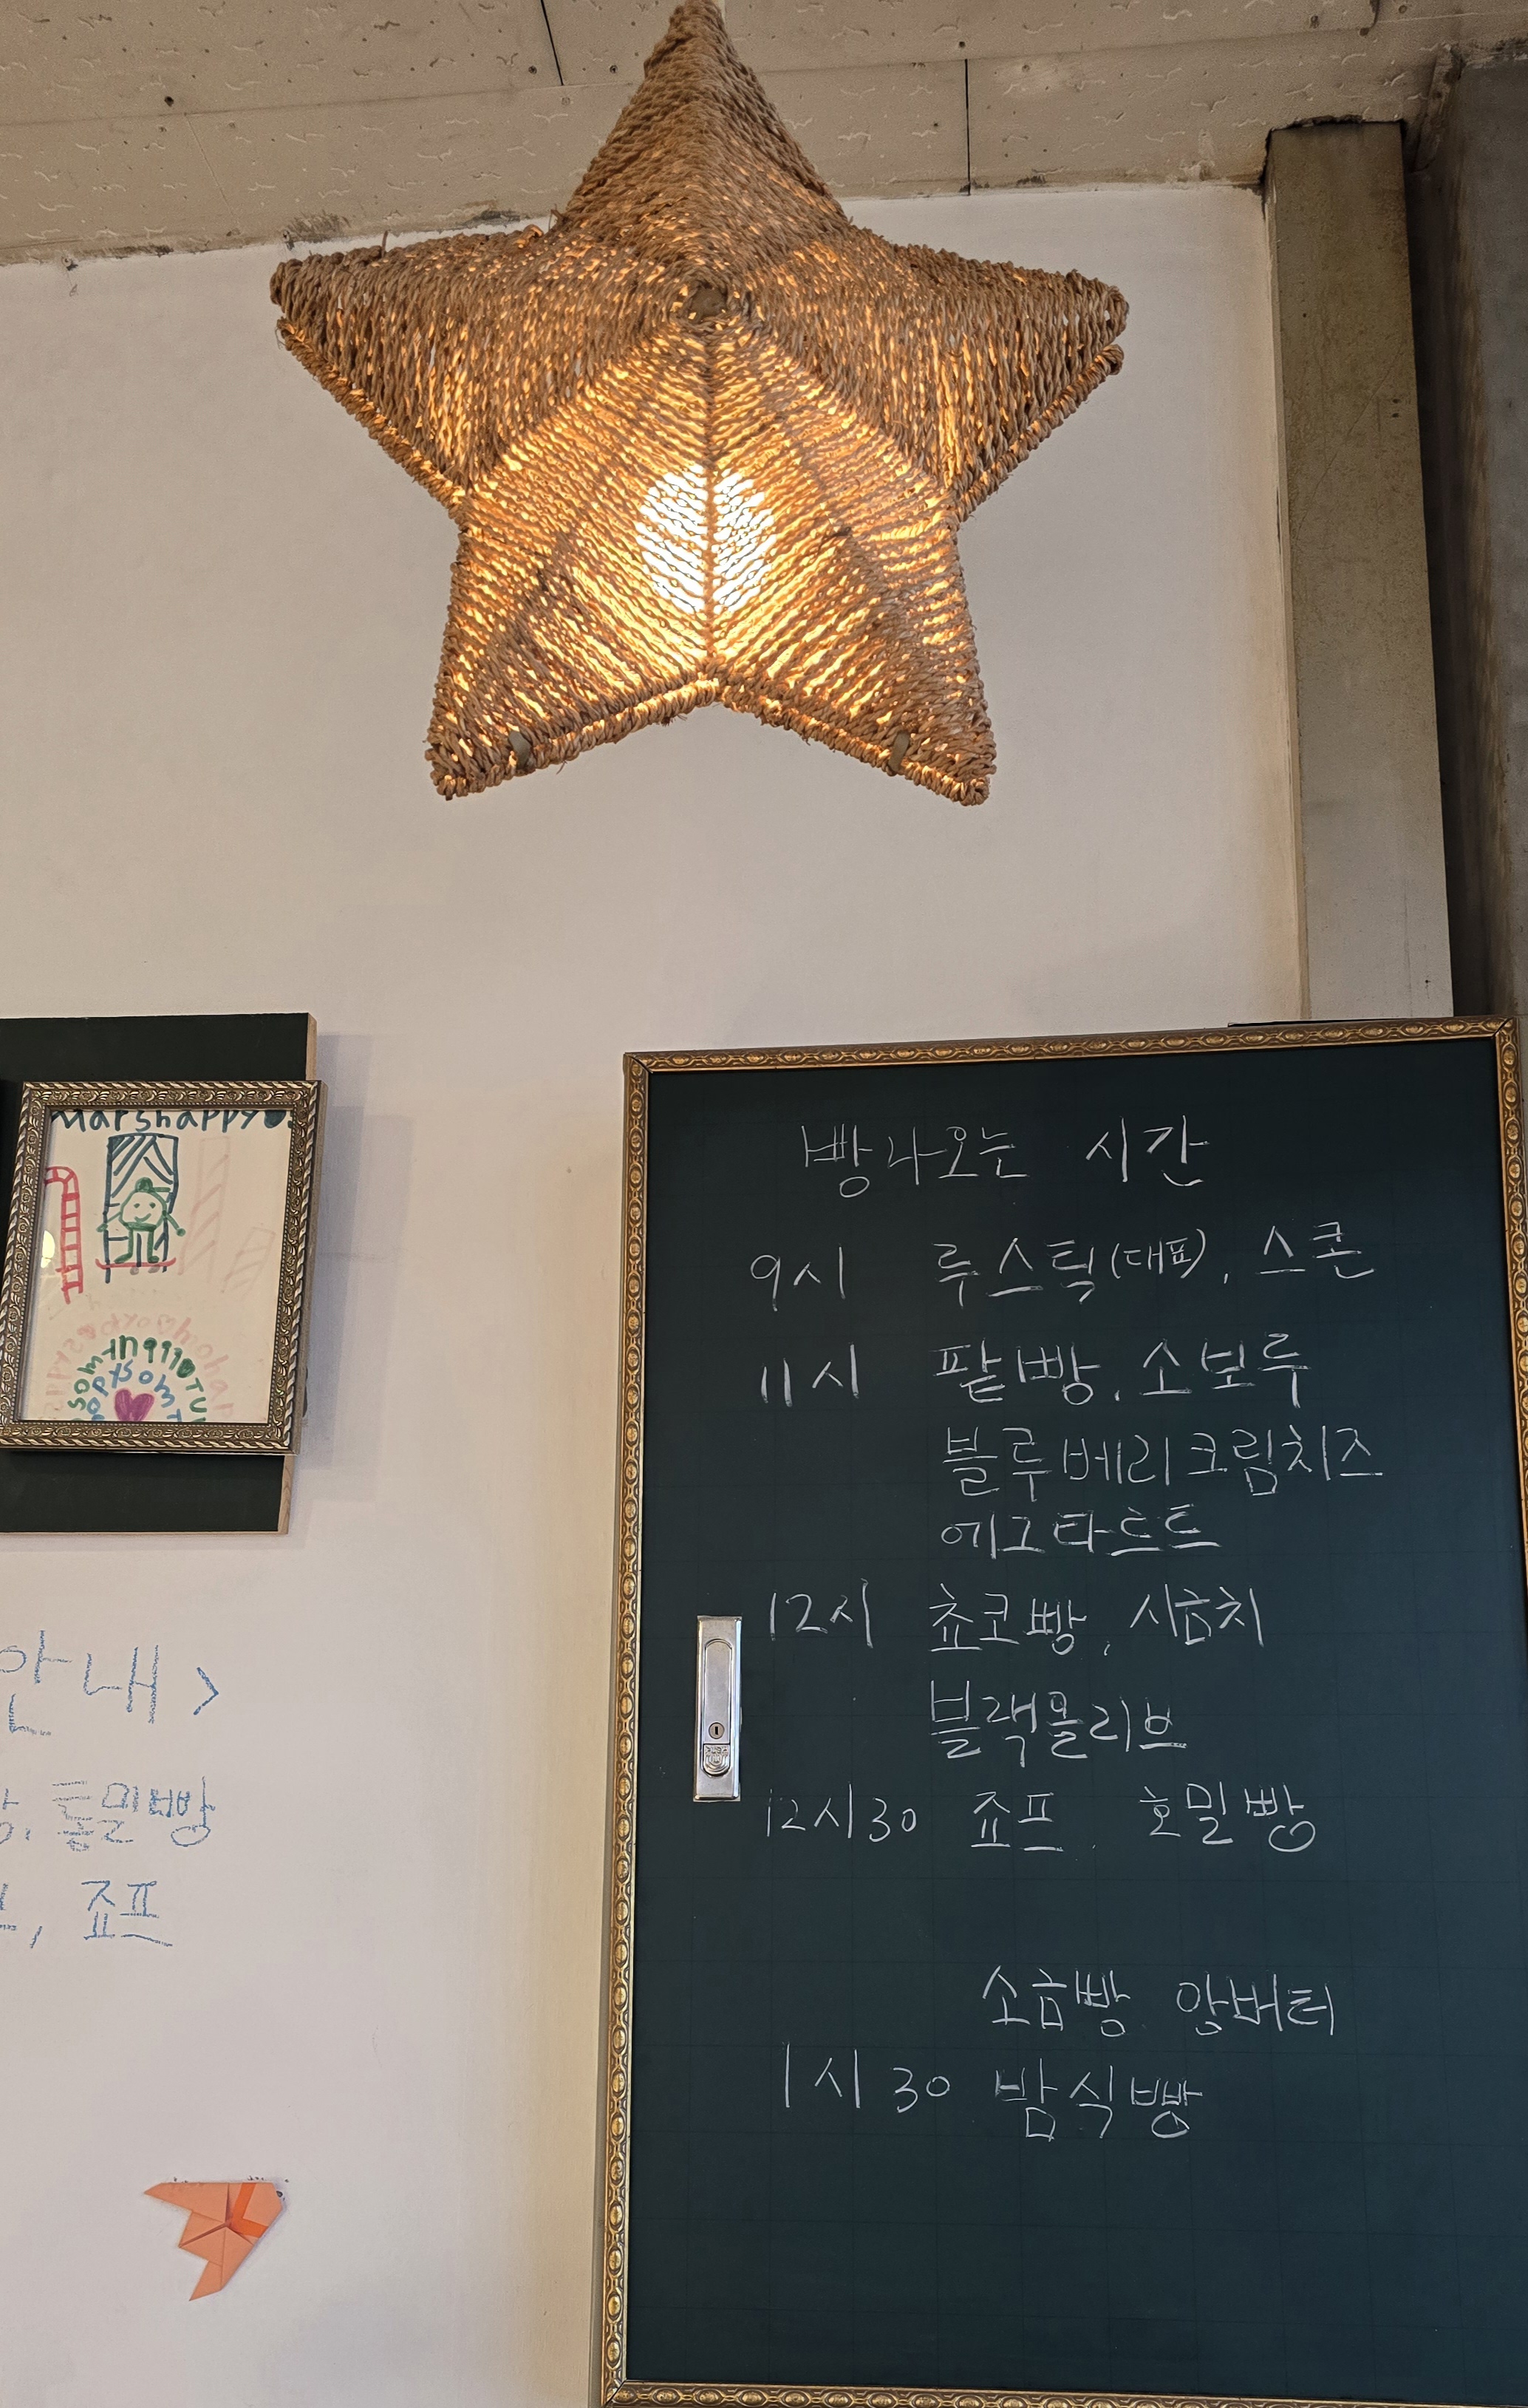 Marshappy
빵나오는 시간
9시 루스틱(대표), 스콘
11시 팥빵, 소보루
블루베리크림치즈
에그타르트
12시 쵸코빵, 시금치
블랙올리브
12시30 죠프, 호밀빵
소금빵 앙버터
1시30 밤식빵
안내>
통밀빵
, 죠프